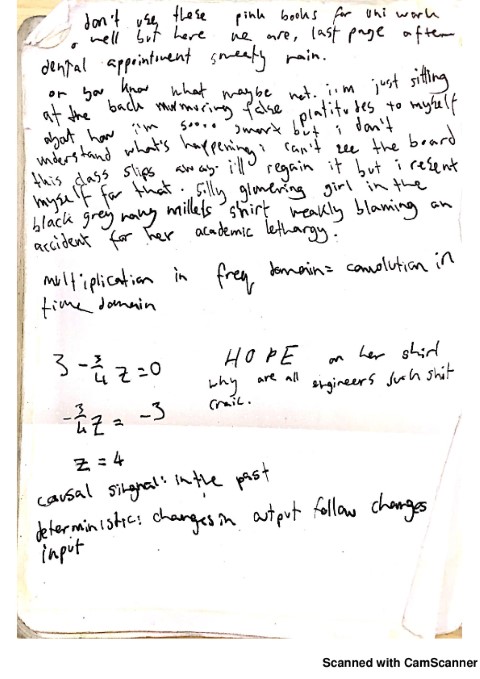 don't use these pink books for uni work
well but here we are, last page after
dental appointment sweaty rain.
or you know what maybe not. i'm just sitting
at the back murmuring false platitudes to myself
about how i'm soooo smart but i don't
understand what's happening i can't see the board
this class slips away i'll regain it but i resent
myself for that. silly glowering girl in the
black grey navy millets shirt weakly blaming an
accident for her academic lethargy.
multiplication in freq domain = convolution in
time domain
3 - 3/4 z = 0
HOPE on her shirt
why are all engineers such shit
craic.
-3/4 z = -3
z = 4
causal signal: in the past
deterministic: changes in output follow changes
input
Scanned with CamScanner